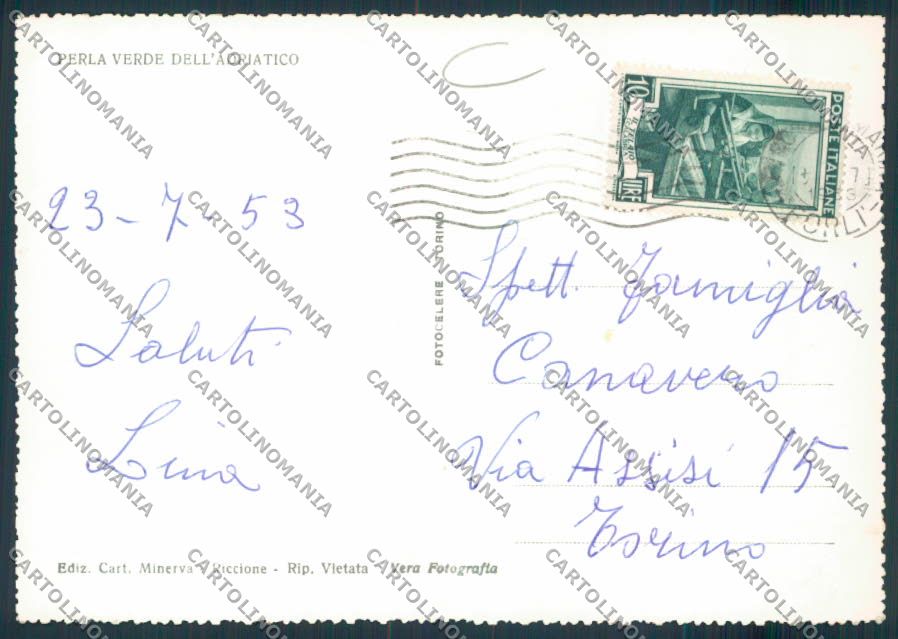 PERLA VERDE DELL'ADRIATICO
10
LIRE
POSTE ITALIANE
IL TELAIO
23-7-53
Saluti
Lina
Spett. Famiglia
Canavero
Via Assisi 15
Torino
FOTOCELERE TORINO
Ediz. Cart. Minerva - Riccione - Rip. Vietata Vera Fotografia
CARTOLINOMANIA